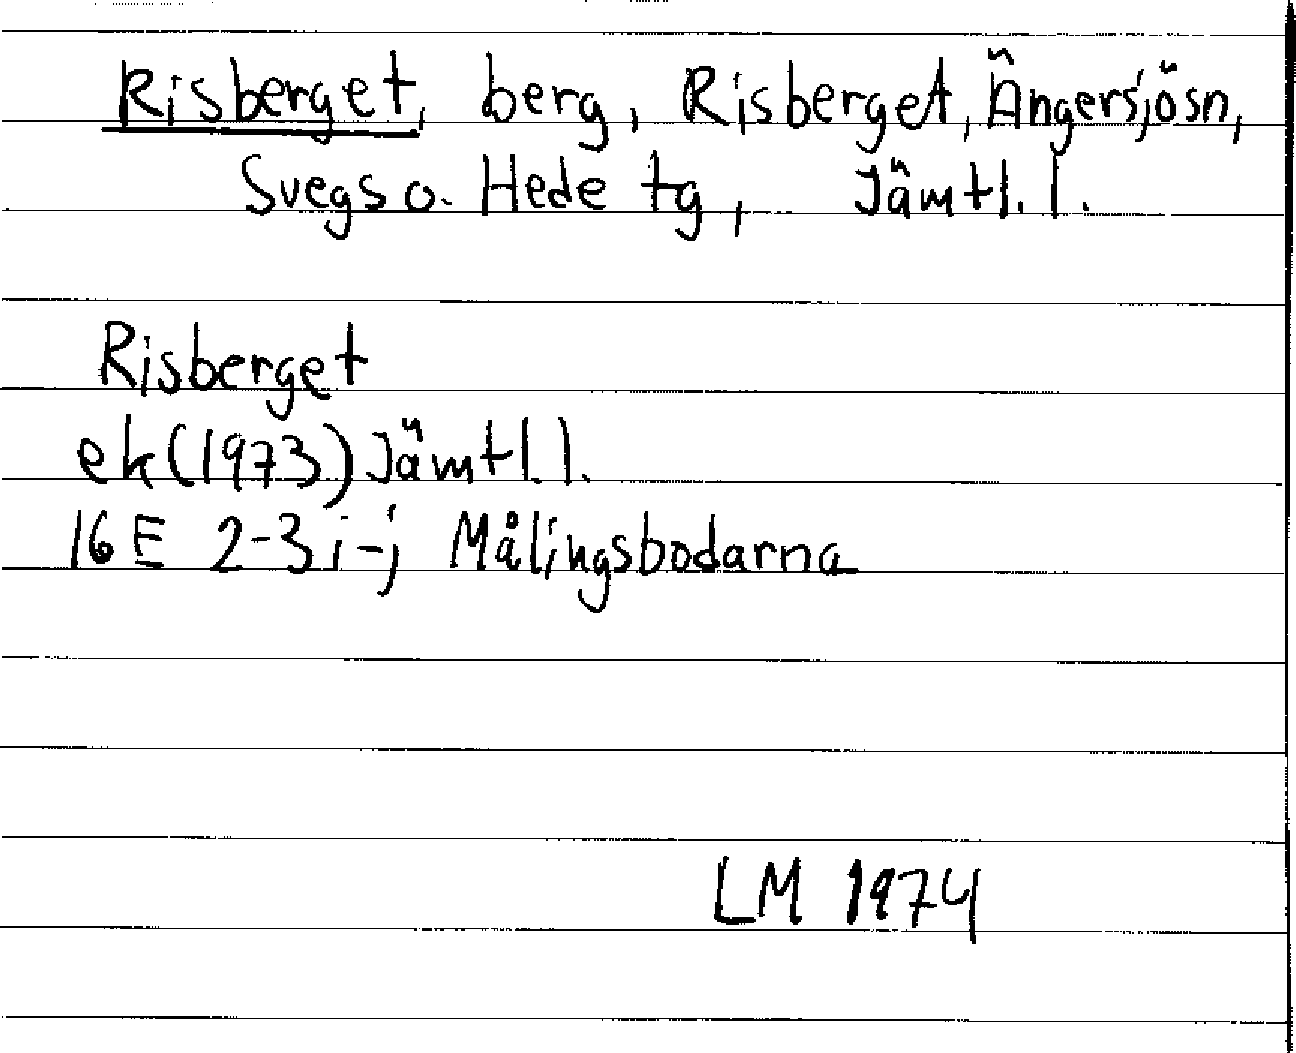 Risberget, berg, Risberget, Ängersjösn,
Svegs o. Hede tg, Jämtl. l.
Risberget
ek (1973) Jämtl. l.
16 E 2-3 i-j Målingsbodarna
LM 1974